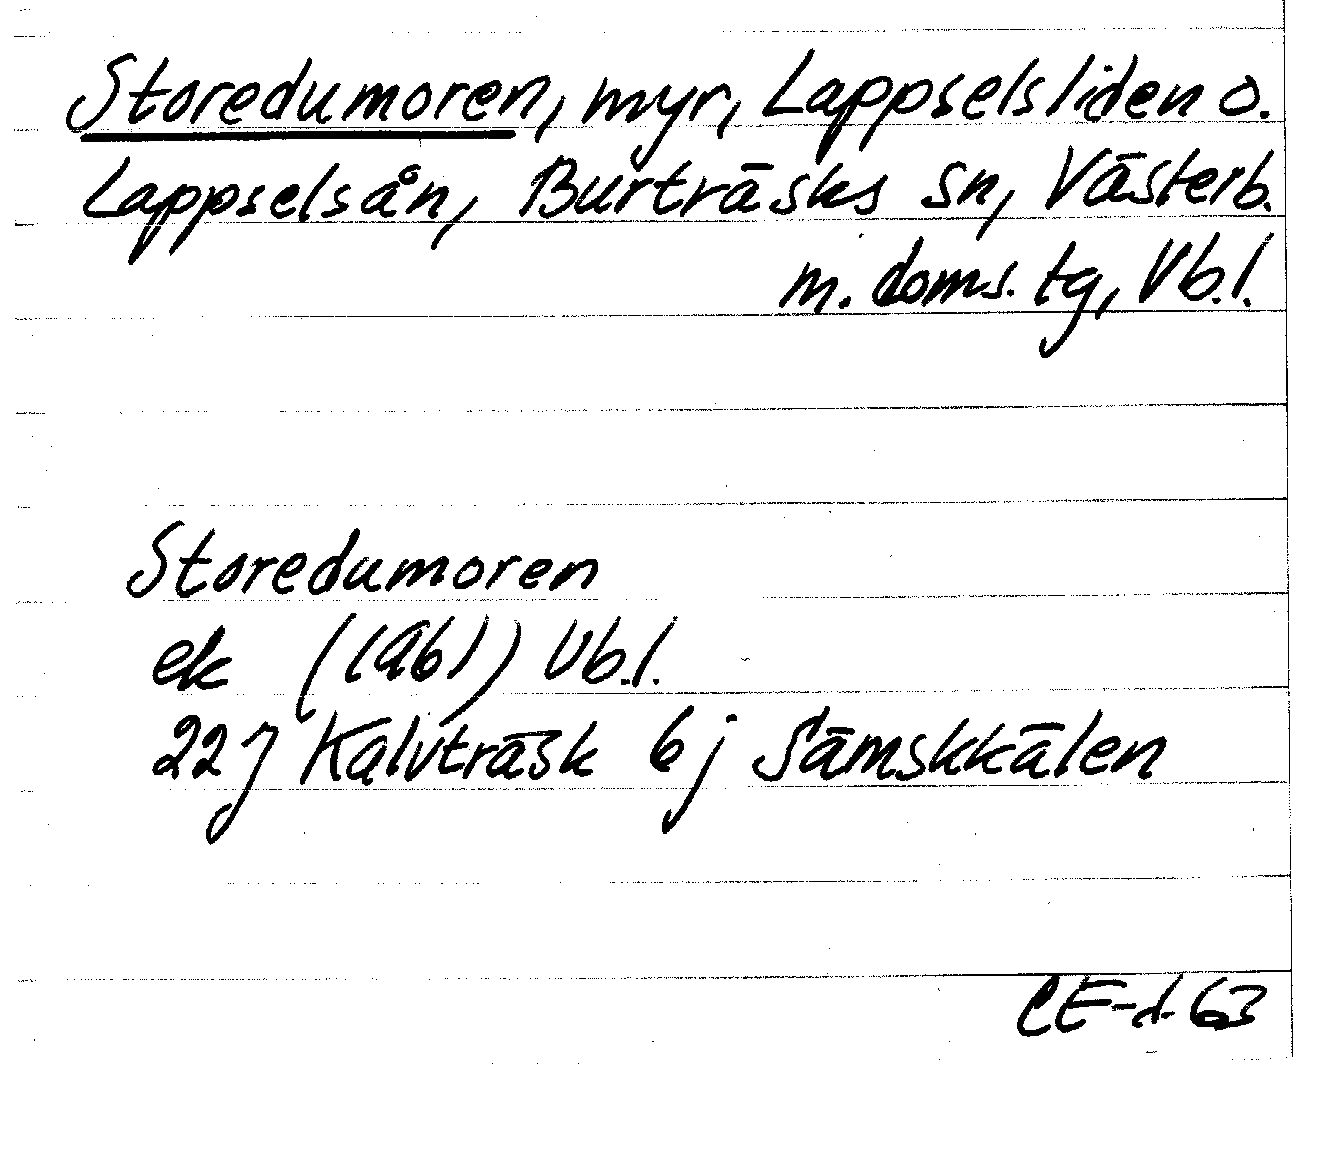 Storedumoren, myr, Lappselsliden o.
Lappselsån, Burträsks sn, Västerb.
m. doms. tg, Vb.l.
Storedumoren
ek (1961) Vb.l.
22J Kalvträsk 6j Sämskkälen
CE-d-63